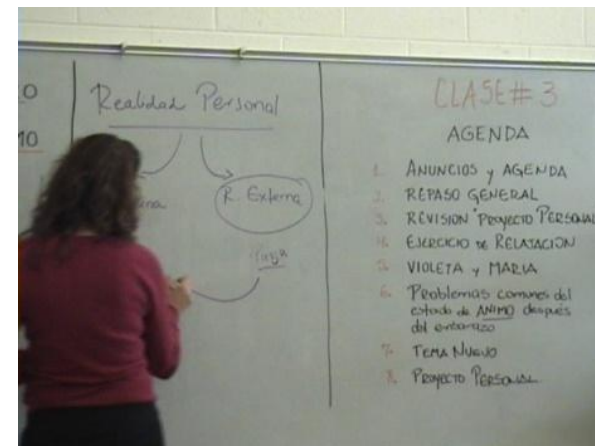 O
10
Realidad Personal
R. Externa
CLASE # 3
AGENDA
1. ANUNCIOS y AGENDA
2. REPASO GENERAL
3. REVISION "PROYECTO PERSONAL
4. EJERCICIO DE RELAJACIÓN
5. VIOLETA y MARIA
6. Problemas comunes del
estado de ANIMO después
del embarazo
7. TEMA NUEVO
8. PROYECTO PERSONAL